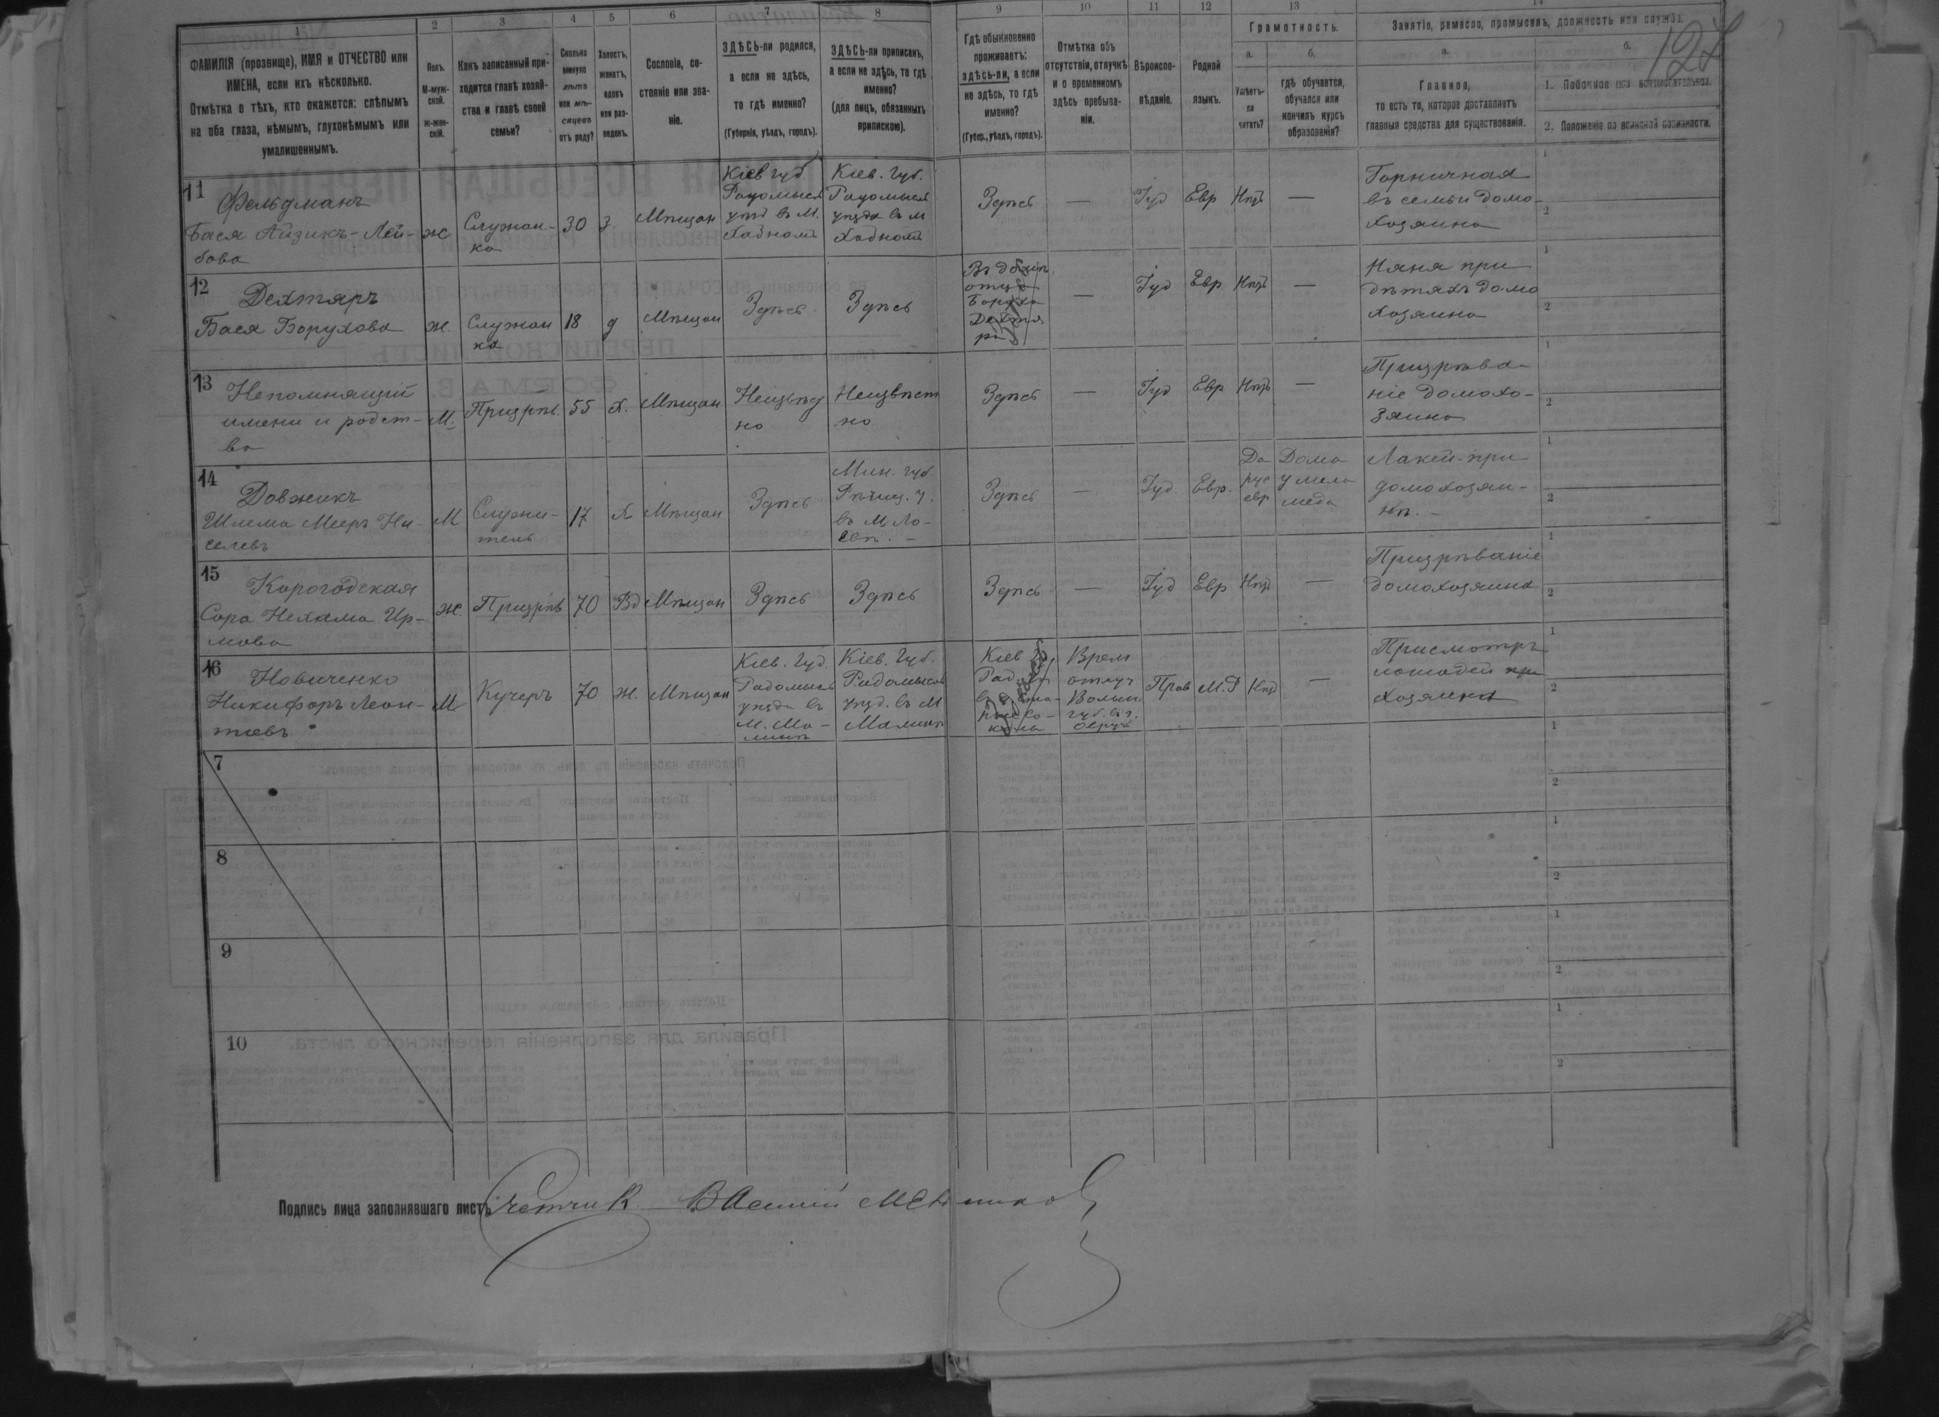 1 2 3 4 5 6 7 8 9 10 11 12 13 14
ФАМИЛІЯ (прозвище), ИМЯ и ОТЧЕСТВО или
ИМЕНА, если ихъ нѣсколько.
Отмѣтка о тѣхъ, кто окажется: слѣпымъ
на оба глаза, нѣмымъ, глухонѣмымъ или
умалишеннымъ.
Полъ.
М-муж-
ской.
ж-жен-
скій.
Какъ записанный при-
ходится главѣ хозяй-
ства и главѣ своей
семьи?
Сколько
минуло
лѣтъ
или мѣ-
сяцевъ
отъ роду?
Холостъ,
женатъ,
вдовъ
или раз-
веденъ.
Сословіе, со-
стояніе или зва-
ніе.
ЗДѢСЬ-ли родился,
а если не здѣсь,
то гдѣ именно?
(Губернія, уѣздъ, городъ).
ЗДѢСЬ-ли приписанъ,
а если не здѣсь, то гдѣ
именно?
(для лицъ, обязанныхъ
припискою).
Гдѣ обыкновенно
проживаетъ:
здѣсь-ли, а если
не здѣсь, то гдѣ
именно?
(Губер., уѣздъ, городъ).
Отмѣтка объ
отсутствіи, отлучкѣ
и о временномъ
здѣсь пребыва-
ніи.
Вѣроиспо-
вѣданіе.
Родной
языкъ.
Грамотность.
а.
Умѣетъ-
ли
читать?
б.
гдѣ обучается,
обучался или
кончилъ курсъ
образованія?
Занятіе, ремесло, промыселъ, должность или служба.
а.
Главное,
то есть то, которое доставляетъ
главныя средства для существованія.
б.
1. Побочное или вспомогательное.
2. Положеніе по воинской повинности.
11
Фельдманъ
Бася Айзикъ-Лей-
бова
ж
Служан-
ка
30
з
Мѣщан
Кіев. губ.
Радомысл
уѣзд въ М.
Хабномъ
Кіев. Губ.
Радомысл
уѣзда въ М
Хабномъ
Здѣсь
—
Іуд
Евр
Нѣтъ
—
Горничная
въ семьи домо
хозяина
12
Дехтяръ
Бася Борухова
ж.
Служан
ка
18
д
Мѣщан
Здѣсь
Здѣсь
отца
Боруха
Дехтя
ра
—
Іуд
Евр
Нѣтъ
—
Няня при
дѣтяхъ домо
хозяина
13
Непомнящій
имени и родст-
ва
М.
Призрѣв.
55
х.
Мѣщан
Неизвѣст
но
Неизвѣстн
но
Здѣсь
—
Іуд
Евр
Нѣтъ
—
Призрѣва-
ніе домохо-
зяина
14
Довжикъ
Шлема Мееръ Ни-
селевъ
М
Служи-
тель
17
х
Мѣщан
Здѣсь
Мин. губ
Рѣчиц. у.
въ М Ло-
евѣ. —
Здѣсь
—
Іуд.
Евр.
Да
рус
евр
Дома
у мела
меда
Лакей при
домохозяи-
нѣ. —
15
Корогодская
Сора Нехама Ир-
мова
ж
Призрѣв
70
Вд
Мѣщан
Здѣсь
Здѣсь
Здѣсь
—
Іуд
Евр
Нѣтъ
—
Призрѣваніе
домохозяина
16
Новиченко
Никифоръ Леон-
тіевъ
М
Кучеръ
70
ж.
Мѣщан
Кіев. Губ
Радомысл
уѣзда въ
М. Ма-
линѣ
Кіев. Губ.
Радомысл
уѣзд. въ М
Малинѣ
Кіев
Рад
Врем
отлуч
Волын
губ. въ г.
Овручъ
Прав
М.Р
Нѣтъ
—
Присмотръ
лошадей при
хозяина
7
8
9
10
Подпись лица заполнявшаго листъ Счетчик Василій